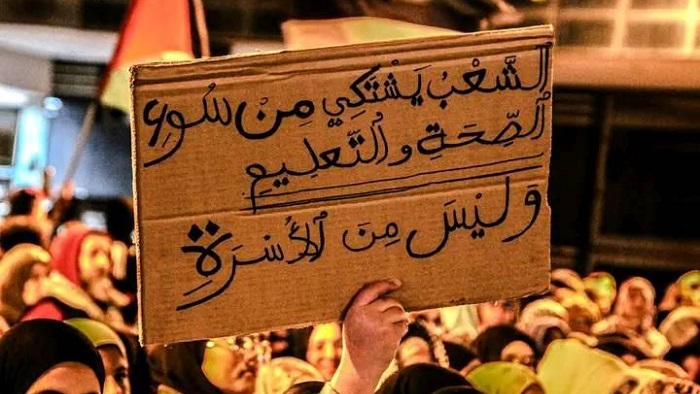 الشَّعْبُ يَشْتَكِي مِنْ سُوءِ
الصِّحَةِ والتَّعلِيمِ
وَليْسَ مِنَ الأُسْرَةِ